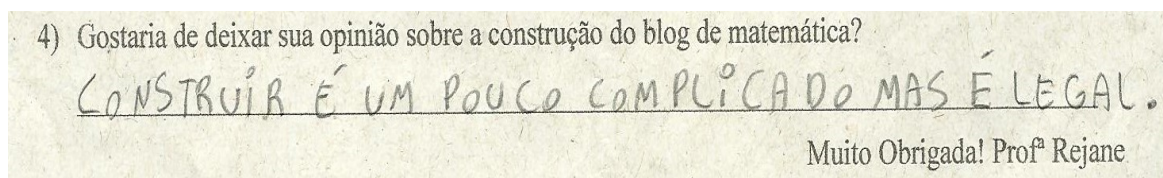 4) Gostaria de deixar sua opinião sobre a construção do blog de matemática?
CONSTRUIR É UM POUCO COMPLICADO MAS É LEGAL.
Muito Obrigada! Profª Rejane